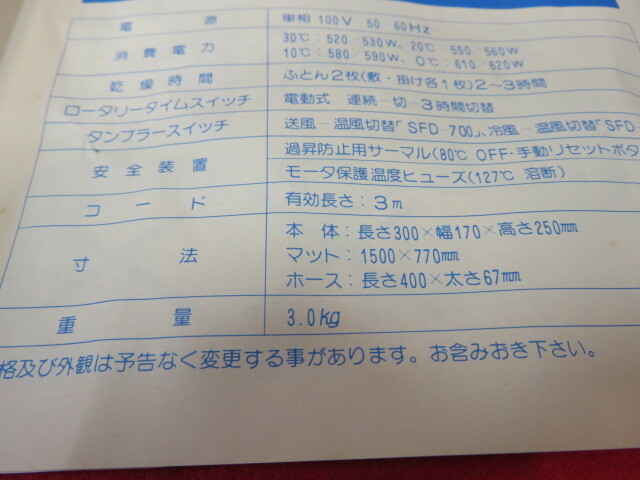 電源 単相 100V 50/60Hz
消費電力 30℃：520/530W、20℃：550/560W
10℃：580/590W、0℃：610/620W
乾燥時間 ふとん2枚(敷・掛け各1枚)2～3時間
ロータリータイムスイッチ 電動式 連続－切－3時間切替
タンブラースイッチ 送風－温風切替「SFD-700」、冷風－温風切替「SFD-
安全装置 過昇防止用サーマル(80℃ OFF・手動リセットボタ
モータ保護温度ヒューズ(127℃ 溶断)
コード 有効長さ：3m
寸法 本体：長さ300×幅170×高さ250㎜
マット：1500×770㎜
ホース：長さ400×太さ67㎜
重量 3.0kg
格及び外観は予告なく変更する事があります。お含みおき下さい。